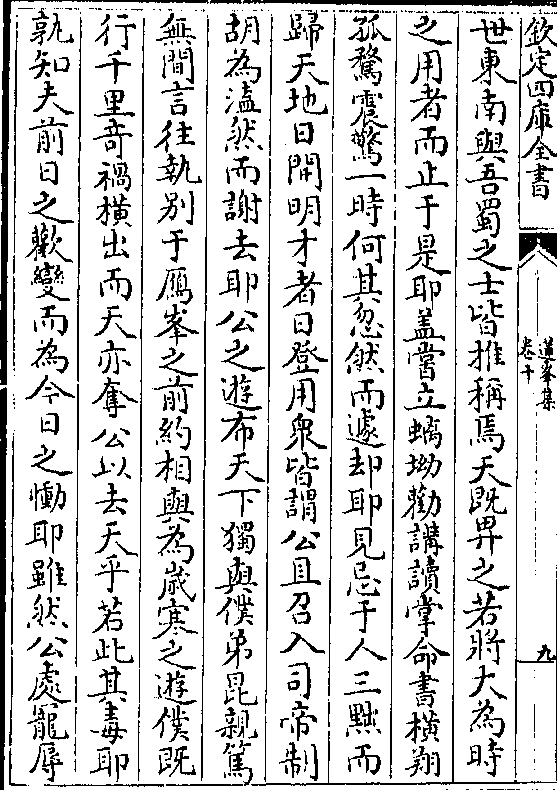 欽定四庫全書
蓮峯集
卷十
九
世東南與吾蜀之士皆推稱焉天既畀之若將大為時
之用者而止于是耶盖嘗立螭坳勸講讀掌命書橫翔
孤騖震驚一時何其忽然而遽却耶見忌于人三黜而
歸天地日開明才者日登用衆皆謂公且召入司帝制
胡為溘然而謝去耶公之遊布天下獨與僕弟昆親篤
無間言往執别于鴈峯之前約相與為歲寒之遊僕既
行千里竒禍橫出而天亦奪公以去天乎若此其毒耶
孰知夫前日之歡變而為今日之慟耶雖然公處寵辱